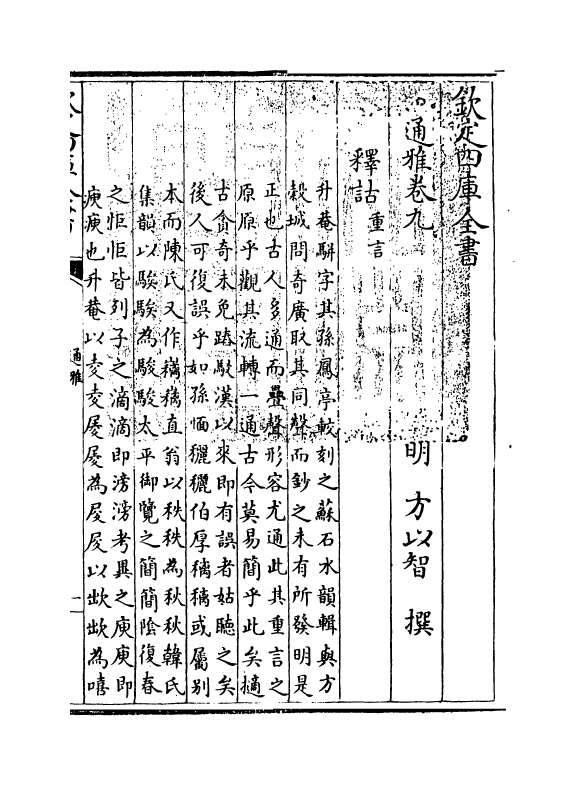 欽定四庫全書
通雅卷九
明 方以智 撰
釋詁重言
升菴駢字其孫鳳亭較刻之蘇石水韻輯與方
穀城問奇廣取其同聲而鈔之未有所發明是
正也古人多通而疊聲形容尤通此其重言之
原原乎觀其流轉一通古今莫易簡乎此矣擿
古貪奇未免踳駁漢以來即有誤者姑聽之矣
後人可復誤乎如孫愐玁玁伯厚穪穪或屬别
本而陳氏又作穐穐直翁以秩秩為秋秋韓氏
集韻以騃騃為駿駿太平御覽之簡簡陰復春
之怇怇皆列子之滴滴即滂滂考異之庾庾即
庾庾也升菴以夌夌屡屡為㞋㞋以欪欪為嘻
通雅
一